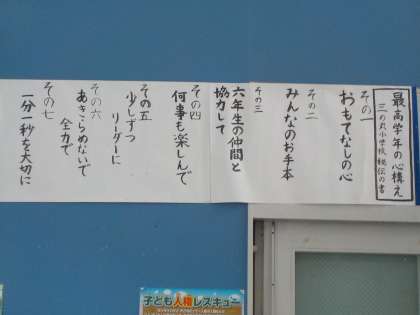 最高学年の心構え
三の丸小学校 秘伝の書
その一
おもてなしの心
その二
みんなのお手本
その三
六年生の仲間と
協力して
その四
何事も楽しんで
その五
少しずつ
リーダーに
その六
あきらめないで
全力で
その七
一分一秒を大切に
子ども人権レスキュー